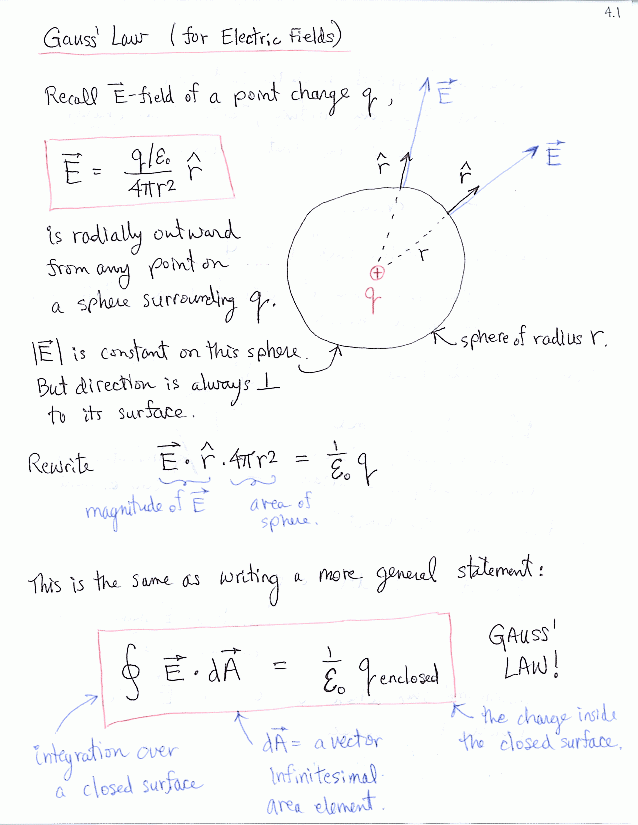 4.1
Gauss' Law (for Electric Fields)
Recall E⃗-field of a point charge q,
E⃗ = (q/ε₀)/(4πr²) r̂
is radially outward
from any point on
a sphere surrounding q.
r̂
E⃗
r̂
E⃗
r
⊕
q
sphere of radius r.
|E⃗| is constant on this sphere.
But direction is always ⊥
to its surface.
Rewrite E⃗ · r̂ · 4πr² = 1/ε₀ q
magnitude of E⃗
area of
sphere.
This is the same as writing a more general statement:
∮ E⃗ · dA⃗ = 1/ε₀ q enclosed
GAUSS'
LAW!
integration over
a closed surface
dA⃗ = a vector
infinitesimal
area element.
the charge inside
the closed surface.